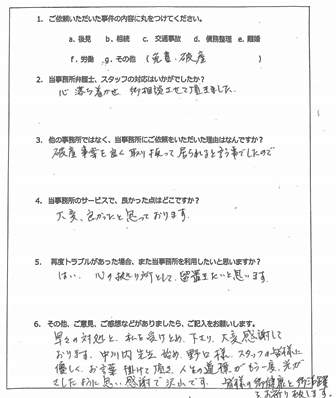 1. ご依頼いただいた事件の内容に丸をつけてください。
a. 後見 b. 相続 c. 交通事故 d. 債務整理 e. 離婚
f. 労働 g. その他 (免責・破産 )
2. 当事務所弁護士、スタッフの対応はいかがでしたか?
心落ち着かせ 御相談させて頂きました.
3. 他の事務所ではなく、当事務所にご依頼をいただいた理由はなんですか?
破産事案を良く取り扱って居られると言う事でしたので
4. 当事務所のサービスで、良かった点はどこですか?
大変、良かったと思っております.
5. 再度トラブルがあった場合、また当事務所を利用したいと思いますか?
はい. 心の拠り所として, 留置きたいと思います.
6. その他、ご意見、ご感想などがありましたら、ご記入をお願いします。
早々の対処と, 私を受けとめ, 下さり, 大変感謝して
おります. 中川内先生 始め, 野口様、スタッフの皆様に
優しく、お言葉掛けて頂き, 人生の道標がもう一度、光が
さしたように思い感謝で沢山です. 皆様の御健康と御活躍
をお祈り致します.